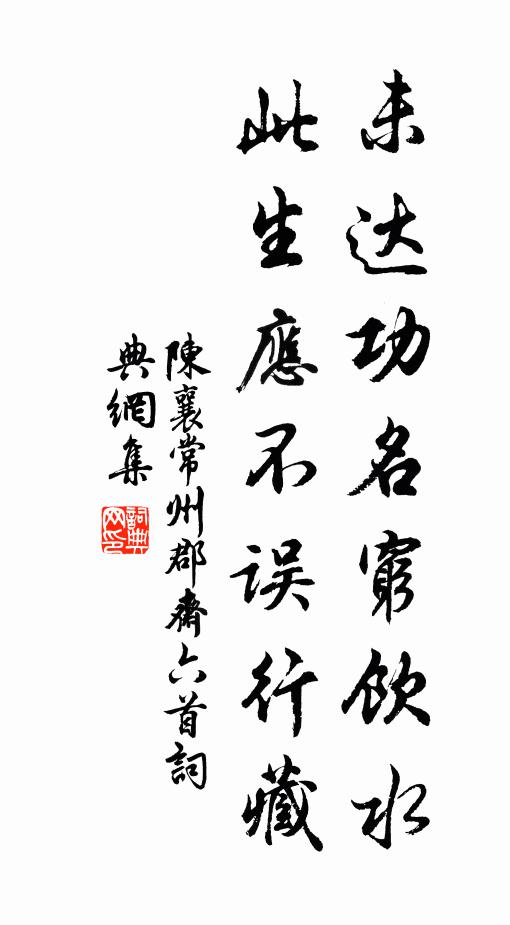 未达功名窮飲水
此生應不误行藏
陳襄常州郡齋六首詞
典網集
詞典网印